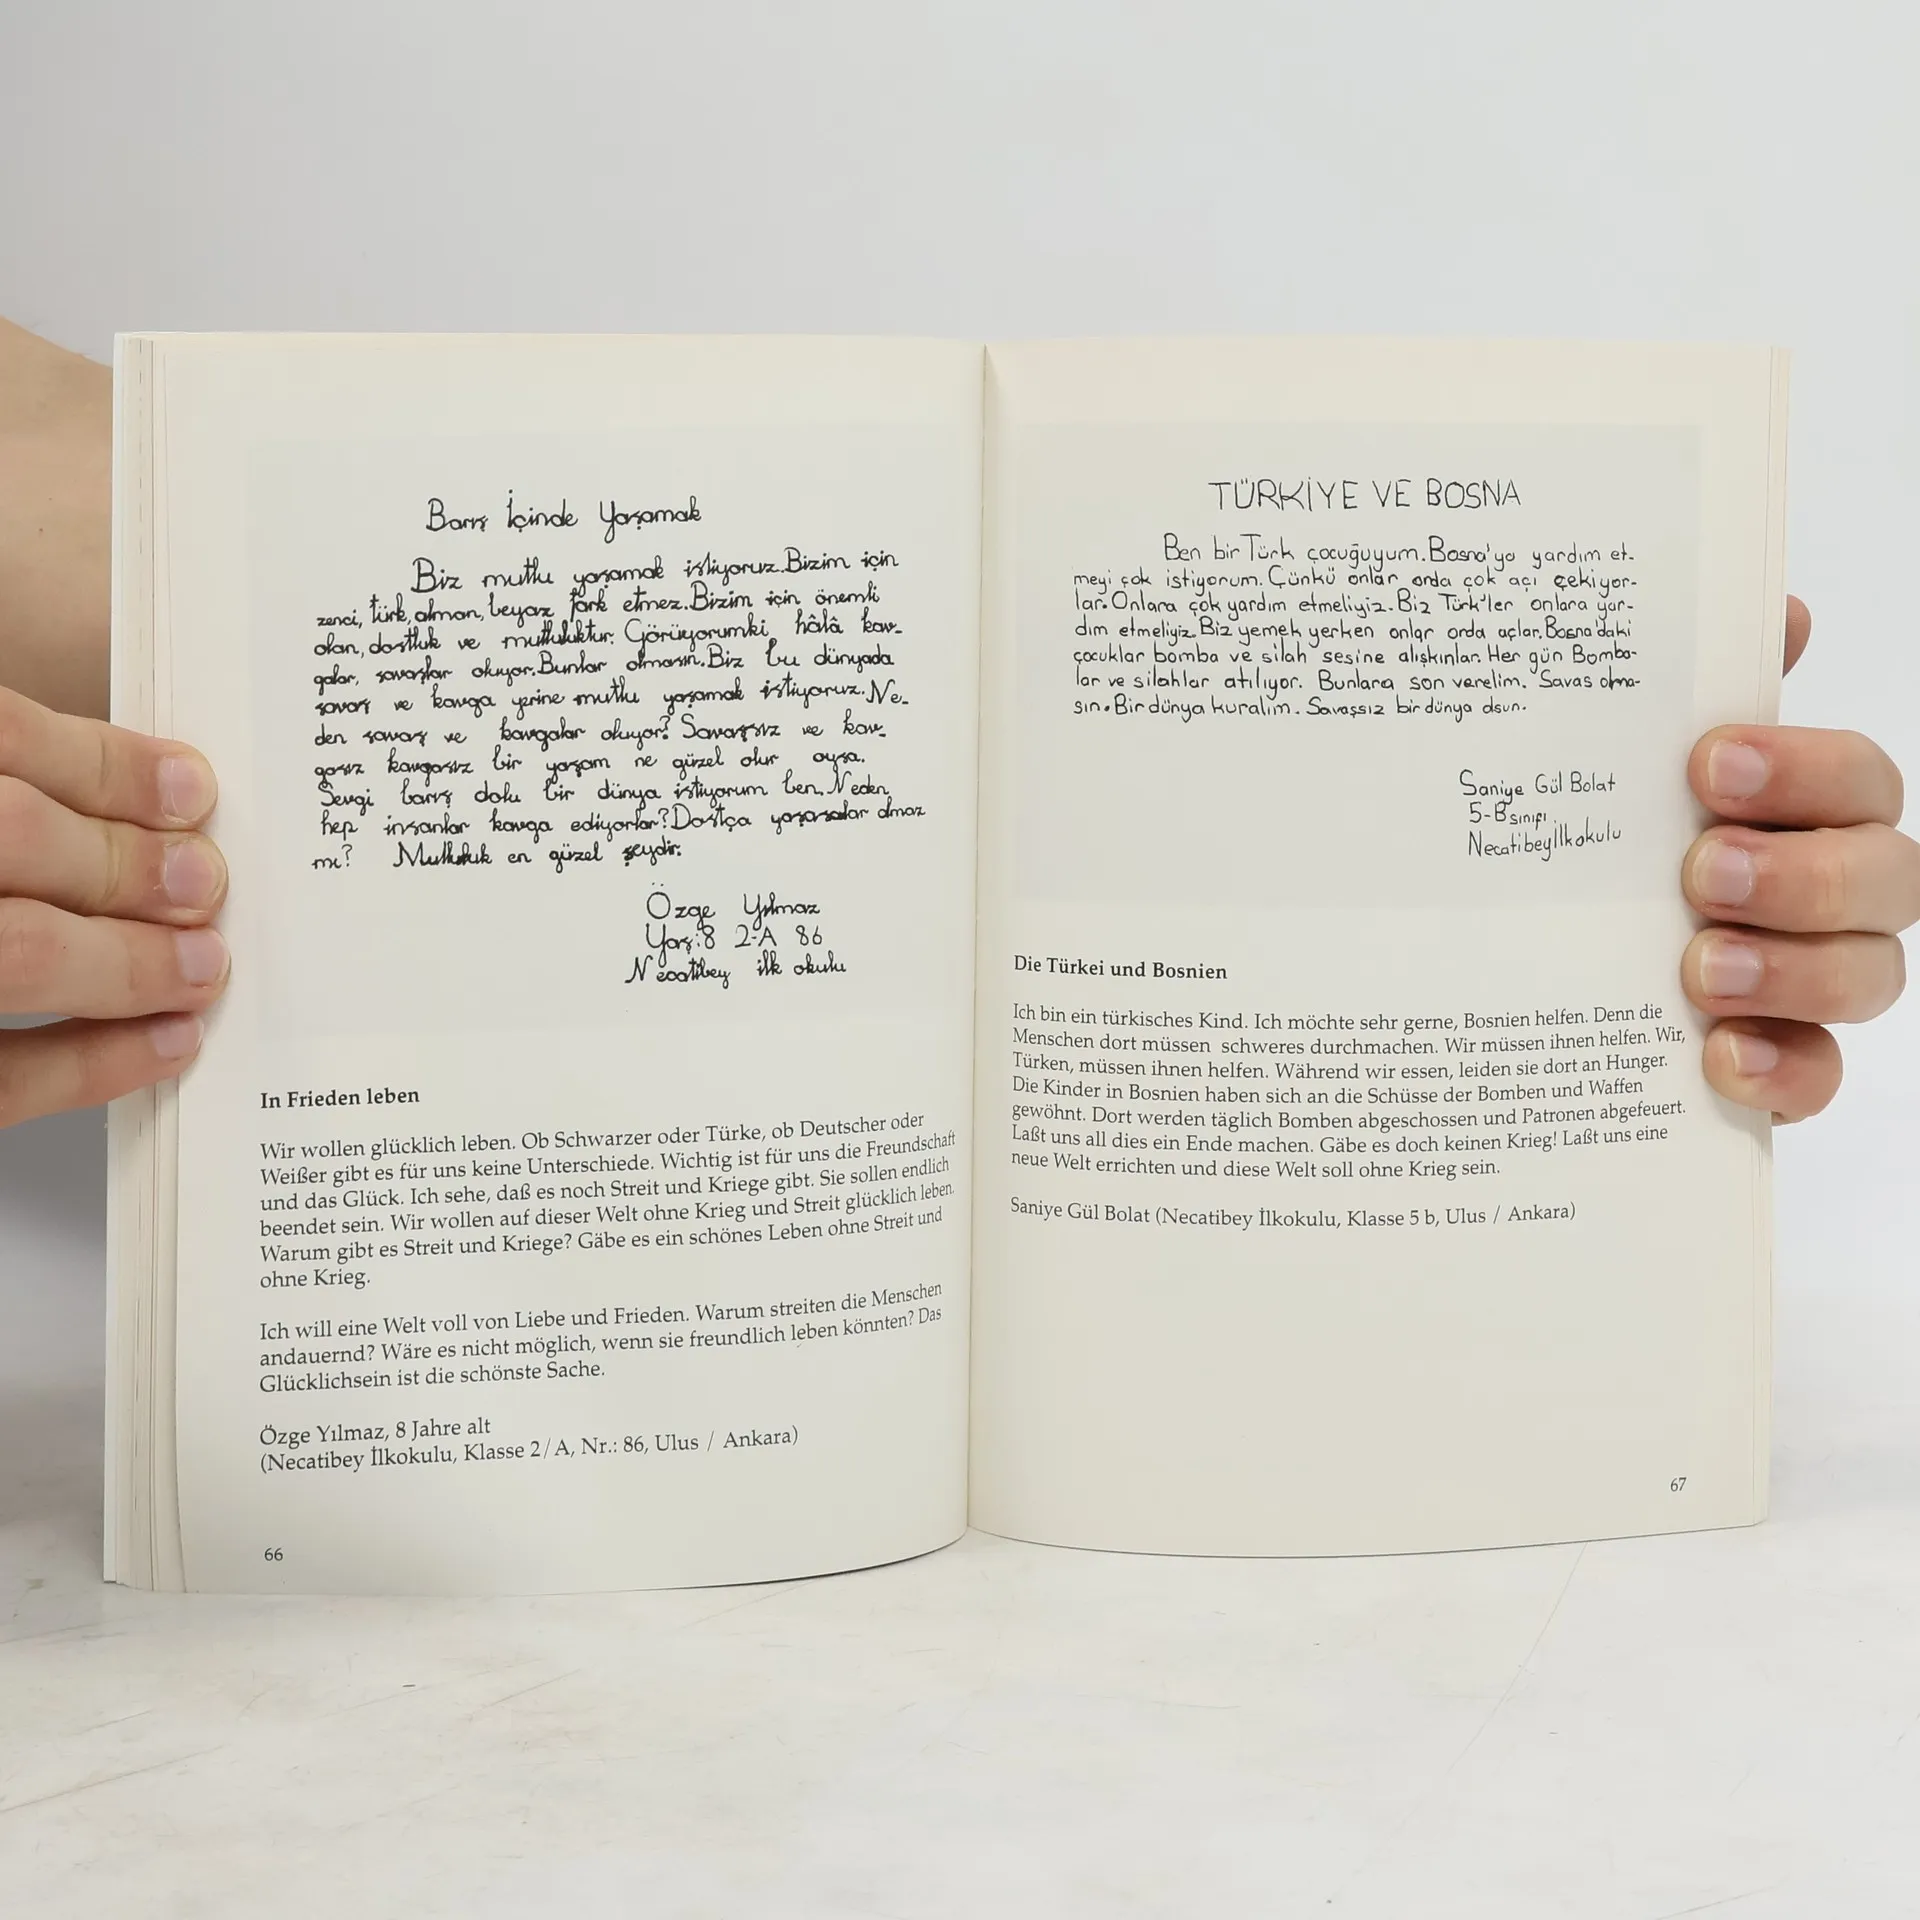 Barış İçinde Yaşamak
Biz mutlu yaşamak istiyoruz.Bizim için
zenci, türk, alman, beyaz fark etmez.Bizim için önemli
olan, dostluk ve mutluluktur. Görüyorumki hâlâ kav-
galar, savaşlar oluyor.Bunlar olmasın.Biz bu dünyada
savaş ve kavga yerine mutlu yaşamak istiyoruz. Ne-
den savaş ve kavgalar oluyor? Savaşsız ve kav-
gasız kavgasız bir yaşam ne güzel olur oysa.
Sevgi barış dolu bir dünya istiyorum ben. Neden
hep insanlar kavga ediyorlar? Dostça yaşasalar olmaz
mı? Mutluluk en güzel şeydir.
Özge Yılmaz
Yaş:8 2-A 86
Necatibey ilk okulu
In Frieden leben
Wir wollen glücklich leben. Ob Schwarzer oder Türke, ob Deutscher oder
Weißer gibt es für uns keine Unterschiede. Wichtig ist für uns die Freundschaft
und das Glück. Ich sehe, daß es noch Streit und Kriege gibt. Sie sollen endlich
beendet sein. Wir wollen auf dieser Welt ohne Krieg und Streit glücklich leben.
Warum gibt es Streit und Kriege? Gäbe es ein schönes Leben ohne Streit und
ohne Krieg.
Ich will eine Welt voll von Liebe und Frieden. Warum streiten die Menschen
andauernd? Wäre es nicht möglich, wenn sie freundlich leben könnten? Das
Glücklichsein ist die schönste Sache.
Özge Yılmaz, 8 Jahre alt
(Necatibey İlkokulu, Klasse 2/A, Nr.: 86, Ulus / Ankara)
66
TÜRKİYE VE BOSNA
Ben bir Türk çocuğuyum. Bosna'ya yardım et-
meyi çok istiyorum. Çünkü onlar orda çok açı çekiyor-
lar. Onlara çok yardım etmeliyiz. Biz Türk'ler onlara yar-
dım etmeliyiz. Biz yemek yerken onlar orda açlar. Bosna'daki
çocuklar bomba ve silah sesine alışkınlar. Her gün Bomba-
lar ve silahlar atılıyor. Bunlara son verelim. Savas olma-
sın. Bir dünya kuralım. Savaşsız bir dünya olsun.
Saniye Gül Bolat
5-B sınıfı
Necatibey İlkokulu
Die Türkei und Bosnien
Ich bin ein türkisches Kind. Ich möchte sehr gerne, Bosnien helfen. Denn die
Menschen dort müssen schweres durchmachen. Wir müssen ihnen helfen. Wir,
Türken, müssen ihnen helfen. Während wir essen, leiden sie dort an Hunger.
Die Kinder in Bosnien haben sich an die Schüsse der Bomben und Waffen
gewöhnt. Dort werden täglich Bomben abgeschossen und Patronen abgefeuert.
Laßt uns all dies ein Ende machen. Gäbe es doch keinen Krieg! Laßt uns eine
neue Welt errichten und diese Welt soll ohne Krieg sein.
Saniye Gül Bolat (Necatibey İlkokulu, Klasse 5 b, Ulus / Ankara)
67